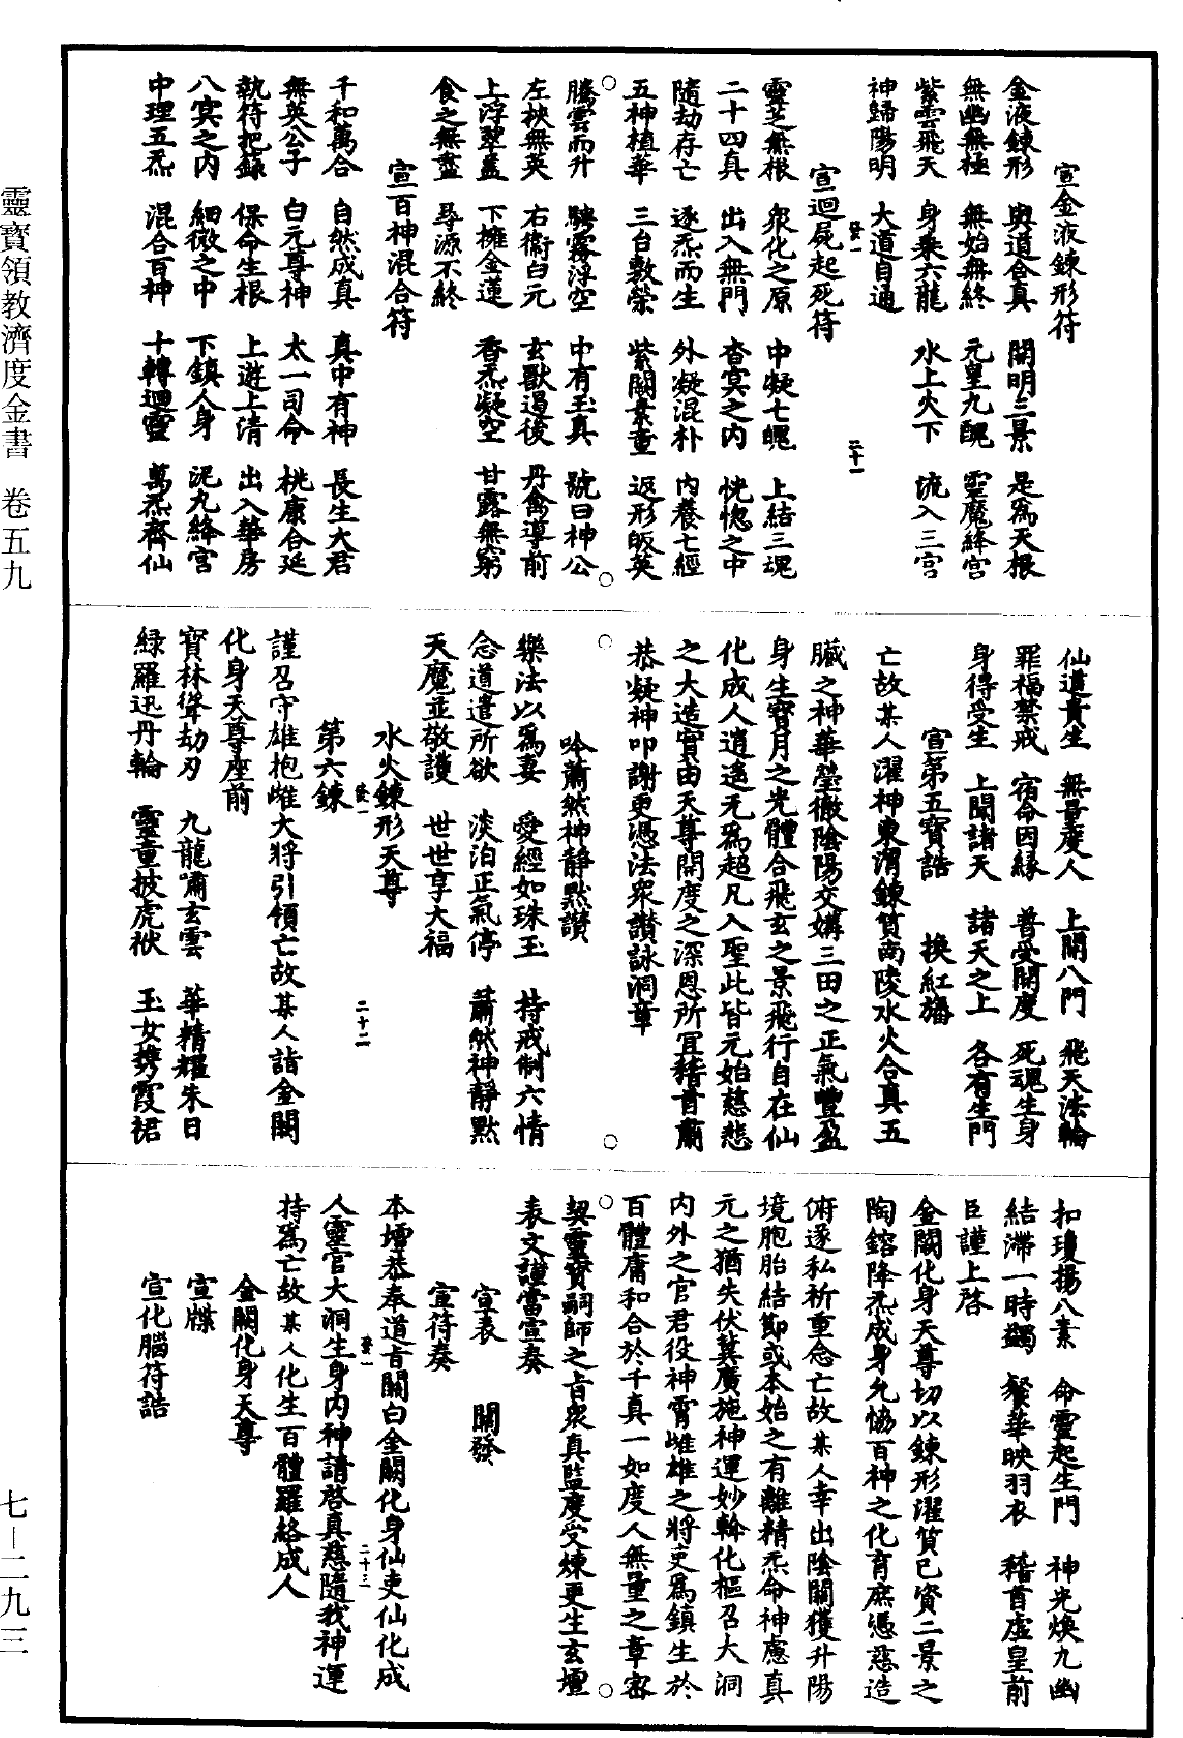 宣金液鍊形符
金液鍊形　與道合真　開明三景　是為天根
無幽無極　無始無終　元皇九醜　靈魔絳宮
紫雲飛天　身乘六龍　水上火下　流入三宮
神歸陽明　大道自通
宣迴屍起死符
靈芝無根　眾化之原　中凝七魄　上結三魂
二十四真　出入無門　杳冥之內　恍惚之中
隨劫存亡　逐炁而生　外凝混朴　內養七經
五神植華　三台敷榮　紫關景童　返形皈英
騰雲而升　騁霧浮空　中有玉真　號曰神公
左挾無英　右衞白元　玄獸遏後　丹禽導前
上浮翠蓋　下擁金蓮　香炁凝空　甘露無窮
食之無盡　尋源不終
宣百神混合符
千和萬合　自然成真　真中有神　長生大君
無英公子　白元尊神　太一司命　桃康合延
執符把籙　保命生根　上遊上清　出入華房
八冥之內　細微之中　下鎮人身　泥丸絳宮
中理五炁　混合百神　十轉迴靈　萬炁齊仙
仙道貴生　無量度人　上開八門　飛天法輪
罪福禁戒　宿命因緣　普受開度　死魂生身
身得受生　上聞諸天　諸天之上　各有生門
宣第五寶誥　換紅旛
亡故某人濯神東渭鍊質南陵水火合真五
臟之神華瑩徹陰陽交媾三田之正氣豐盈
身生寶月之光體合飛玄之景飛行自在仙
化成人逍遙无為超凡入聖此皆元始慈悲
之大造實由天尊開度之深恩所宜稽首肅
恭凝神叩謝更憑法眾讚詠洞章
吟蕭然神靜默讚
樂法以為妻　愛經如珠玉　持戒制六情
念道遣所欲　淡泊正氣停　蕭然神靜默
天魔並敬護　世世享大福
水火鍊形天尊
第六鍊
謹召守雄抱雌大將引領亡故某人詣金闕
化身天尊座前
寶林聳劫刃　九龍嘯玄雲　華精耀朱日
綠羅迅丹輪　靈童披虎袱　玉女携霞裙
扣瓊揚八素　命靈起生門　神光煥九幽
結滯一時蠲　鬘華映羽衣　稽首虛皇前
臣謹上啓
金闕化身天尊切以鍊形濯質已資二景之
陶鎔降炁成身允恊百神之化育庶憑慈造
俯遂私祈重念亡故某人幸出陰關獲升陽
境胞胎結節或本始之有離精炁命神慮真
元之猶失伏冀廣施神運妙斡化樞召大洞
內外之官君役神霄雌雄之將吏為鎮生於
百體庸和合於千真一如度人無量之章密
契靈寶嗣師之旨眾真監度受煉更生玄壇
表文謹當宣奏
宣表　關發
宣符奏
本壇恭奉道旨關白金闕化身仙吏仙化成
人靈官大洞生身內神請啓真慈隨我神運
持為亡故某人化生百體羅絡成人
金闕化身天尊
宣牒
宣化腦符誥
二十一
二十二
二十三
靈寶領教濟度金書　卷五九
七－二九三